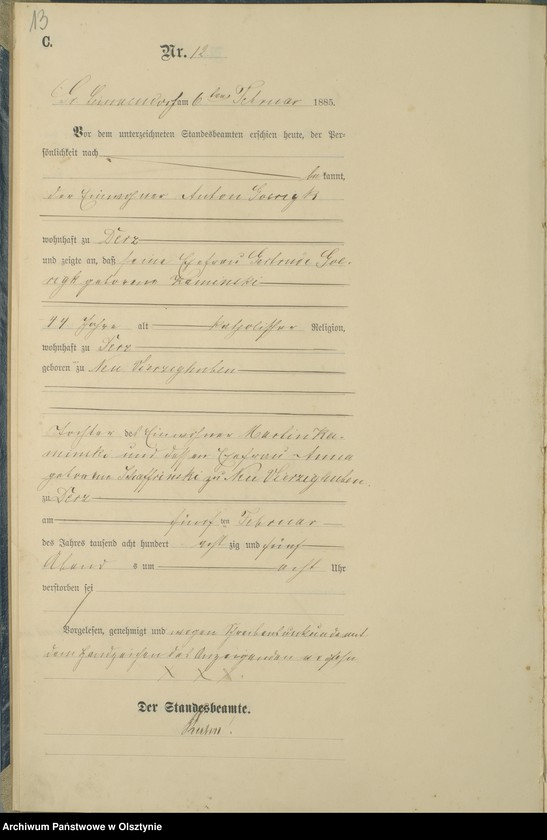 13
C.
Nr. 12
am 6 ten Februar 1885.
Vor dem unterzeichneten Standesbeamten erschien heute, der Per-
sönlichkeit nach
be kannt,
der Einwohner Anton
wohnhaft zu Derz
und zeigte an, daß seine Ehefrau
geborene Kaminski
44 Jahre alt katholischer Religion,
wohnhaft zu Derz
geboren zu Neu Vierzighuben
Tochter des Einwohner Martin Ka-
minski und dessen Ehefrau Anna
geborene zu Neu Vierzighuben
zu Derz
am fünf ten Februar
des Jahres tausend acht hundert acht zig und fünf
Abend s um acht Uhr
verstorben sei
Vorgelesen, genehmigt und wegen Schreibensunkunde mit
dem Handzeichen des Anzeigenden versehen
X X X.
Der Standesbeamte.
Archiwum Państwowe w Olsztynie